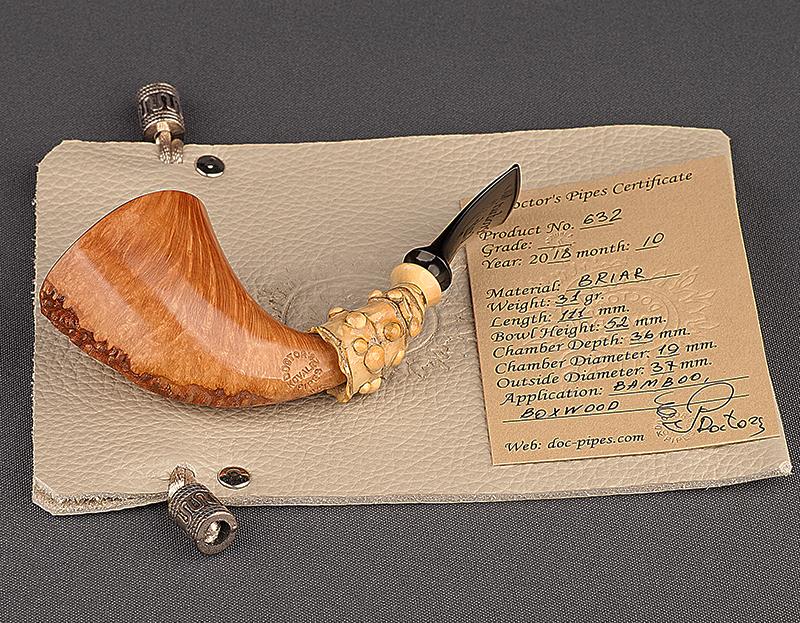 Doctor's Pipes Certificate
Product No. 632
Grade:
Year: 2018 month: 10
Material: BRIAR
Weight: 31 gr.
Length: 111 mm.
Bowl Height: 52 mm.
Chamber Depth: 36 mm.
Chamber Diameter: 19 mm.
Outside Diameter: 37 mm.
Application: BAMBOO,
BOXWOOD
Doctors
Web: doc-pipes.com
DOCTOR'S
KOVALEV
PIPES